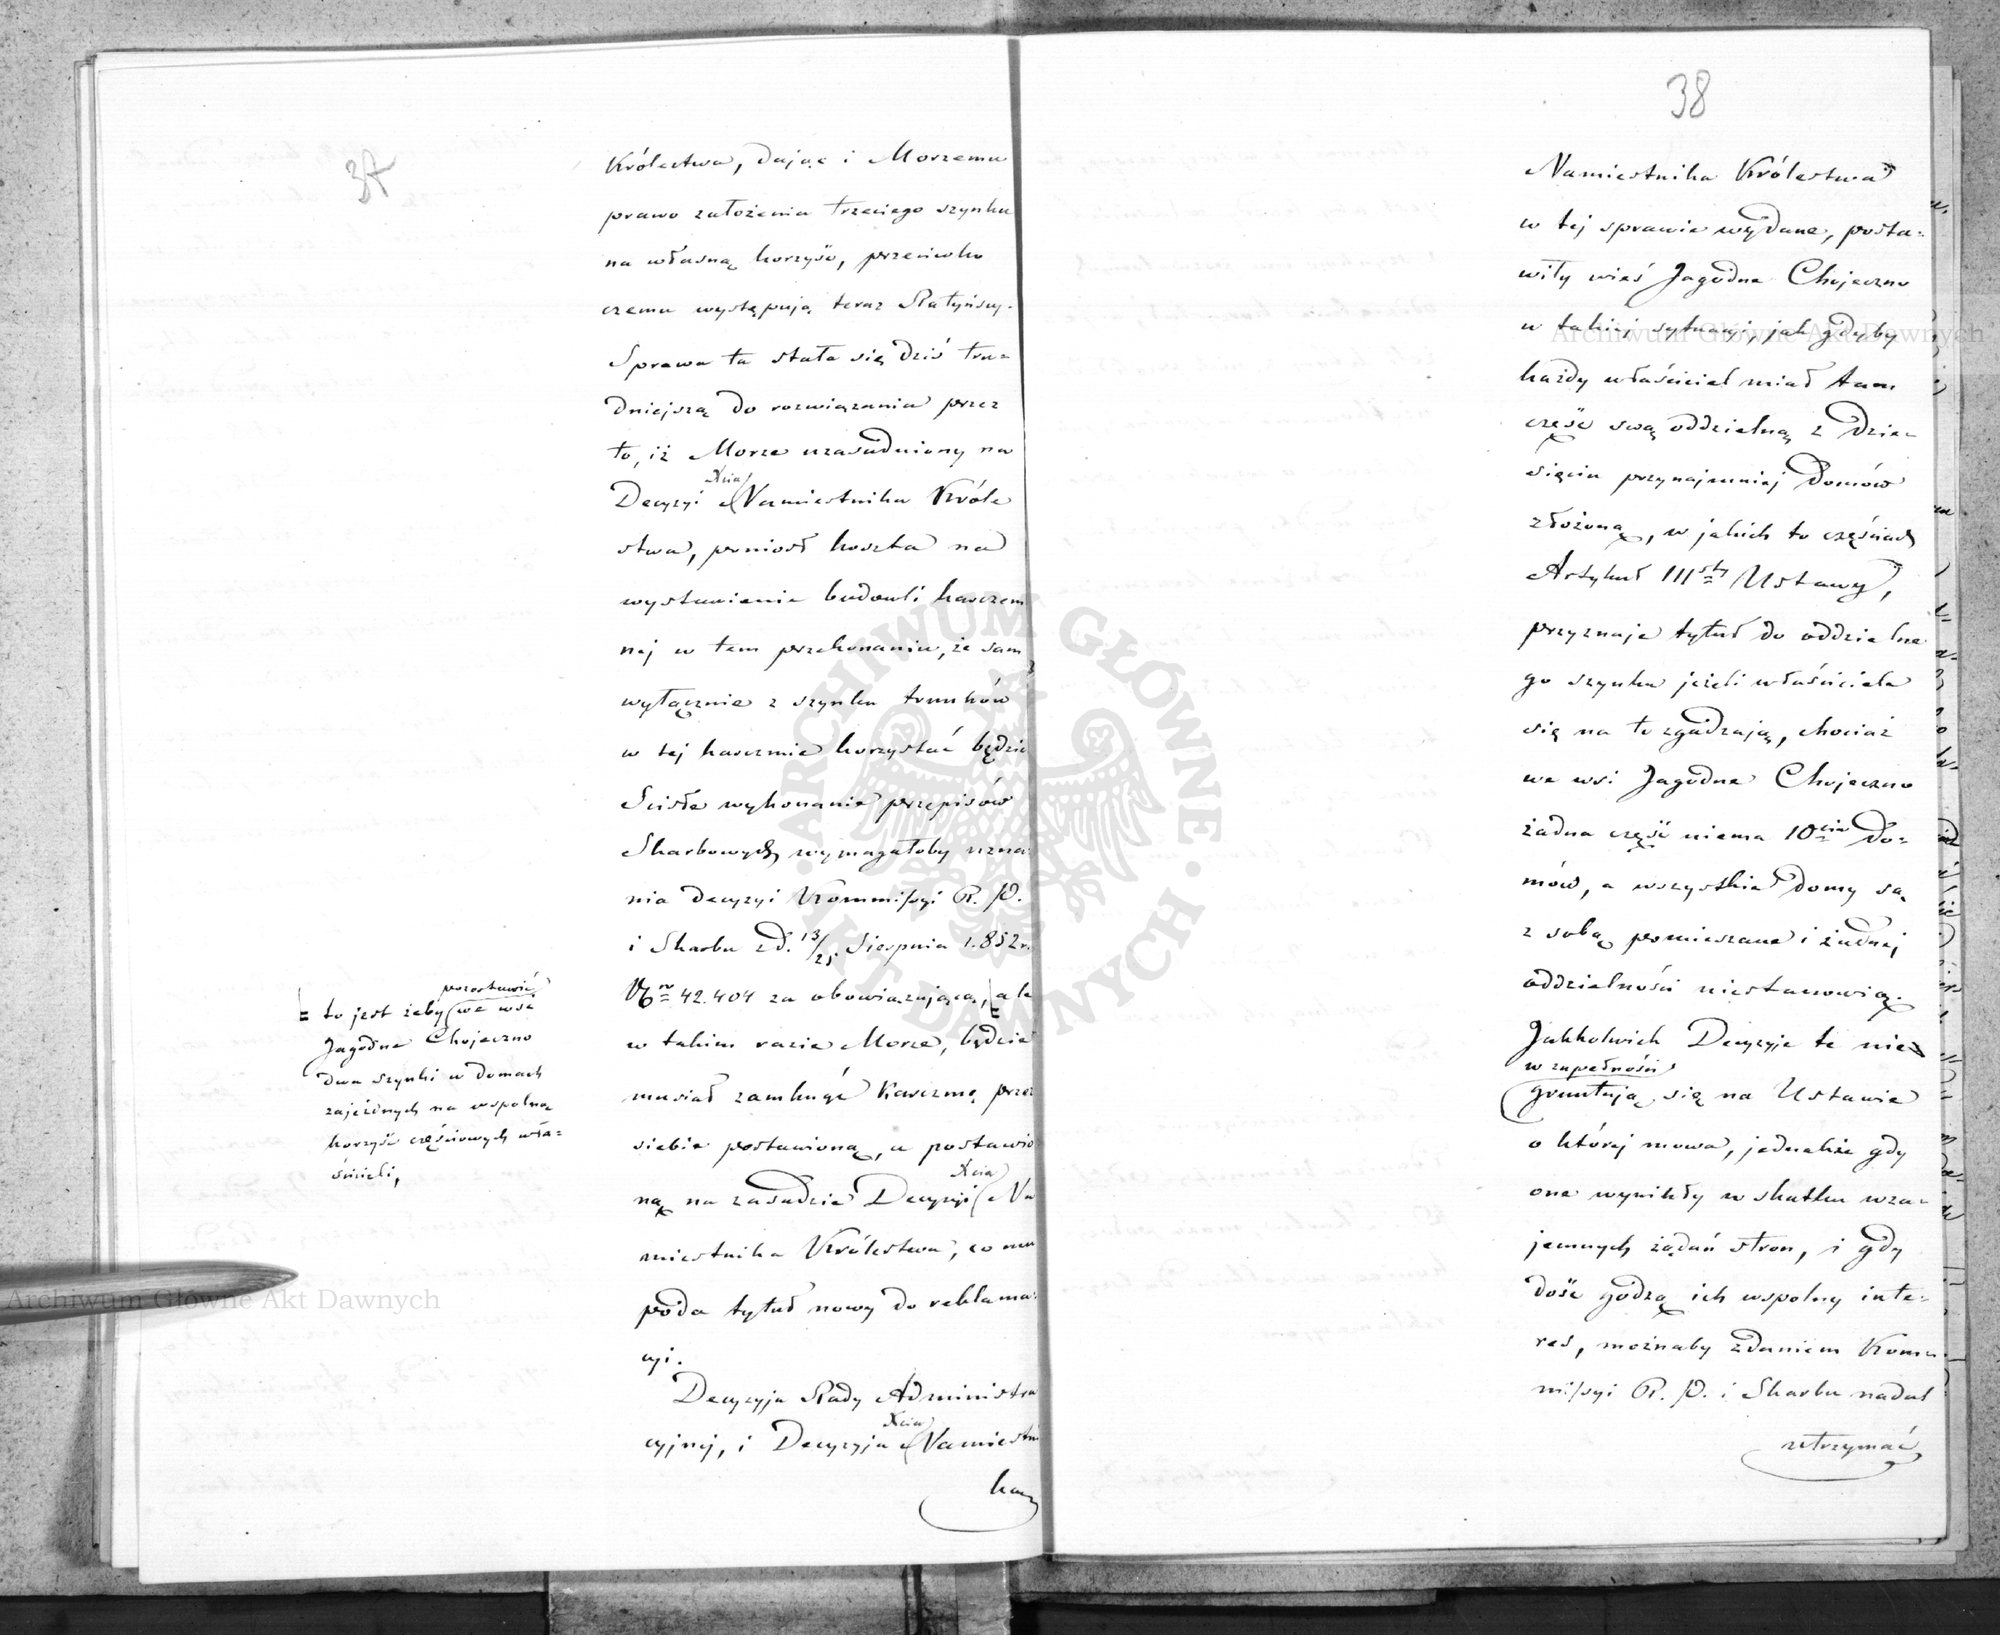 37
Królestwa, dając i Morzemu
prawo założenia trzeciego szynku
na własną korzyść, przeciwko
czemu występują teraz Ratyńscy.
Sprawa ta stała się dziś tru-
dniejszą do rozwiązania przez
to, iż Morze uzasadniony na
Xcia
Decyzyi Namiestnika Króle
stwa, poniosł koszta na
wystawienie budowli karczem
nej w tem przekonaniu, że sam
wyłącznie z szynku trunków
w tej karczmie korzystać będzie
Scisłe wykonanie przepisów
Skarbowych wymagałoby uzna-
nia Decyzyi Kommissyi R. P.
i Skarbu z d. 13/25 Sierpnia 1852 r.
Nro 42.404 za obowiązującą, ale
w takim razie Morze, będzie
musiał zamknąć Karczmę przez
siebie postawioną, a postawio
ną na zasadzie Decyzyi Na
Xcia
miestnika Królestwa, co mu
poda tytuł nowy do reklama-
cyi.
Decyzyja Rady Administra
cyjnej, i Decyzyja Namiestni
Xcia
ka
pozostawić
to jest żeby we wsi
Jagodne Chojeczno
dwa szynki w domach
zajezdnych na wspolną
korzyść częściowych wła-
ścicieli,
38
Namiestnika Królestwa
w tej sprawie wydane, posta-
wiły wieś Jagodne Chojeczno
w takiej sytuacyi, jak gdyby
każdy właściciel miał tam
część swą oddzielną z dzie-
sięciu przynajmniej Domów
złożoną, w jakich to częściach
Artykuł III Ustawy,
przyznaje tytuł do oddzielne
go szynku jeżeli właściciele
się na to zgadzają, chociaż
we wsi Jagodne Chojeczno
żadna część niema 10ciu Do-
mów, a wszystkie Domy są
z sobą pomieszane i żadnej
oddzielności niestanowią.
Jakkolwiek Decyzyje te nie
w zupełności
gruntują się na Ustawie
o której mowa, jednakże gdy
one wynikły w skutku wza-
jemnych żądań stron, i gdy
dość godzą ich wspolny inte-
res, możnaby zdaniem Kom-
missyi R. P. i Skarbu nadal
utrzymać
Archiwum Główne Akt Dawnych
Archiwum Główne Akt Dawnych
ARCHIWUM GŁÓWNE AKT DAWNYCH